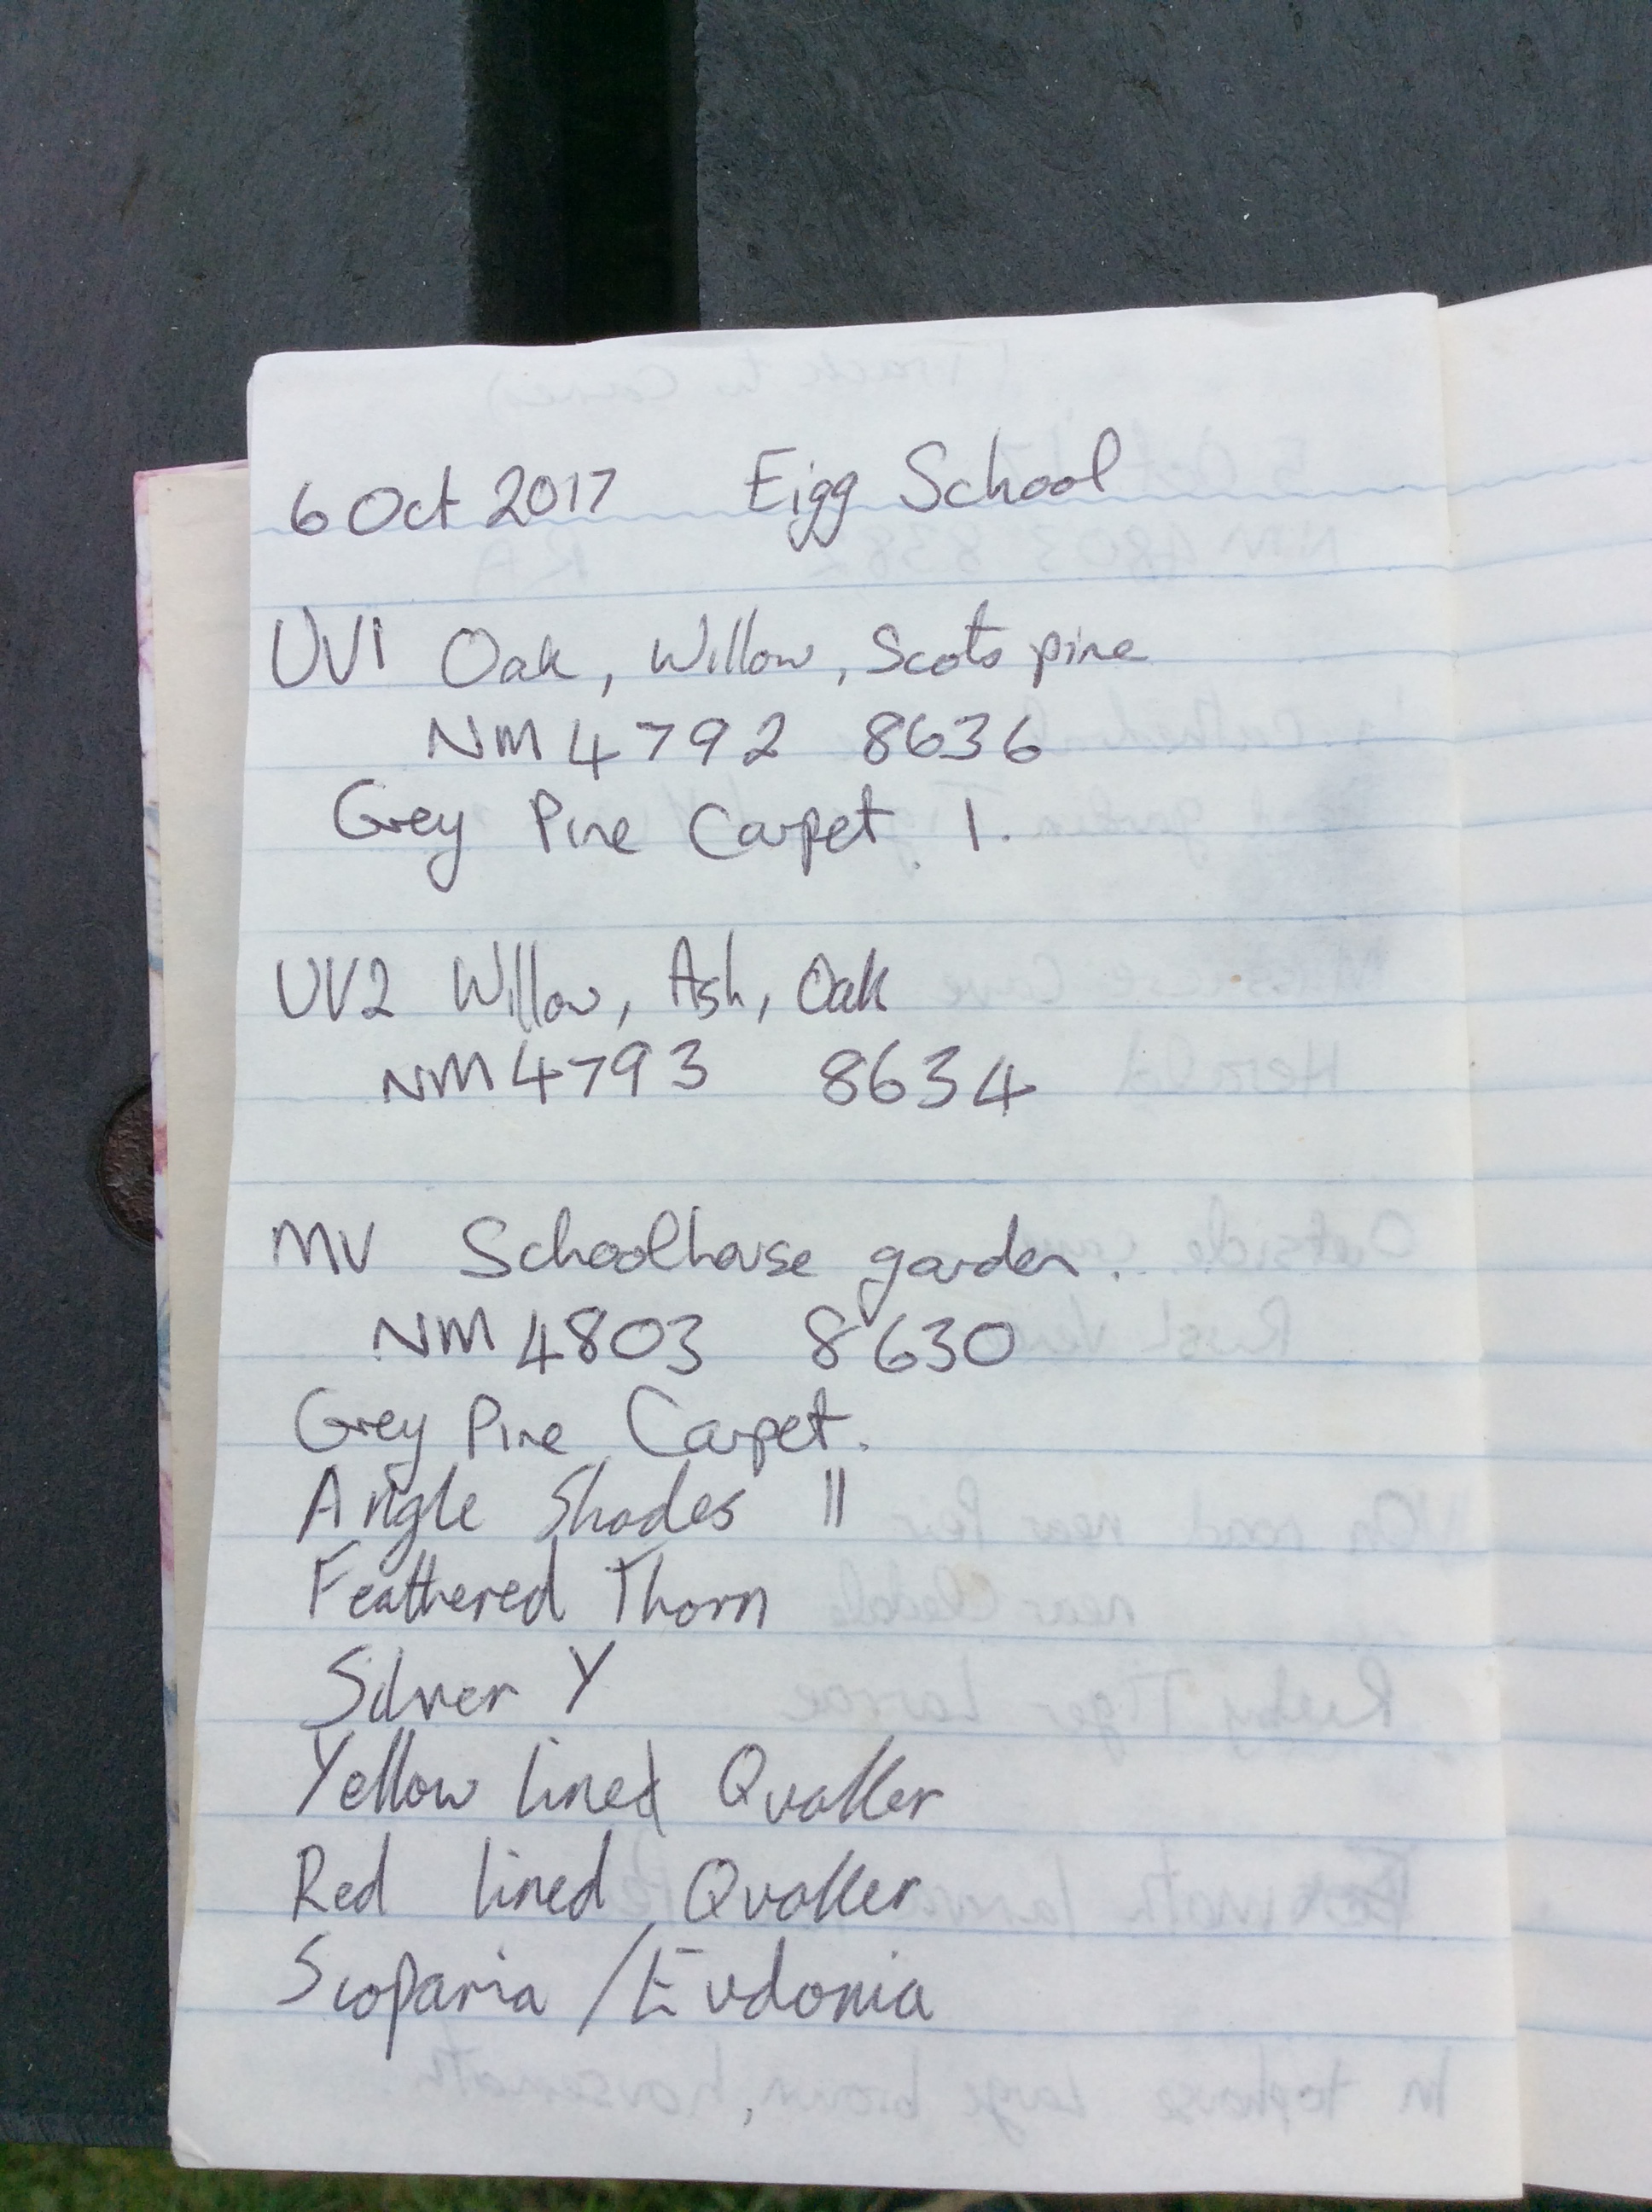 6 Oct 2017 Eigg School
UV1 Oak, Willow, Scots pine
NM 4792 8636
Grey Pine Carpet. 1.
UV2 Willow, Ash, Oak
NM 4793 8634
MV Schoolhouse garden.
NM 4803 8630
Grey Pine Carpet.
Angle Shades ||
Feathered Thorn
Silver Y
Yellow lined Quaker
Red lined Quaker
Scoparia / Eudonia